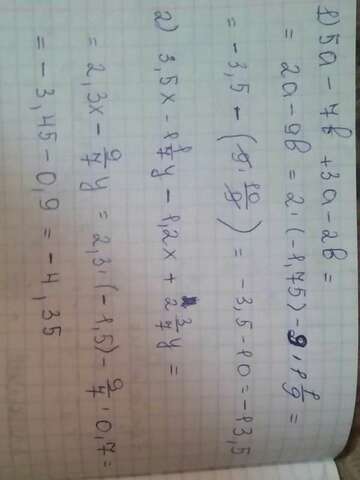 1) 5a - 7b + 3a - 2b =
= 2a - 9b = 2 · (-1,75) - 9 · 1 1/9 =
= -3,5 - (9 · 10/9) = -3,5 - 10 = -13,5
2) 3,5x - 1 1/7 y - 1,2x + 2 3/7 y =
= 2,3x - 9/7 y = 2,3 · (-1,5) - 9/7 · 0,7 =
= -3,45 - 0,9 = -4,35